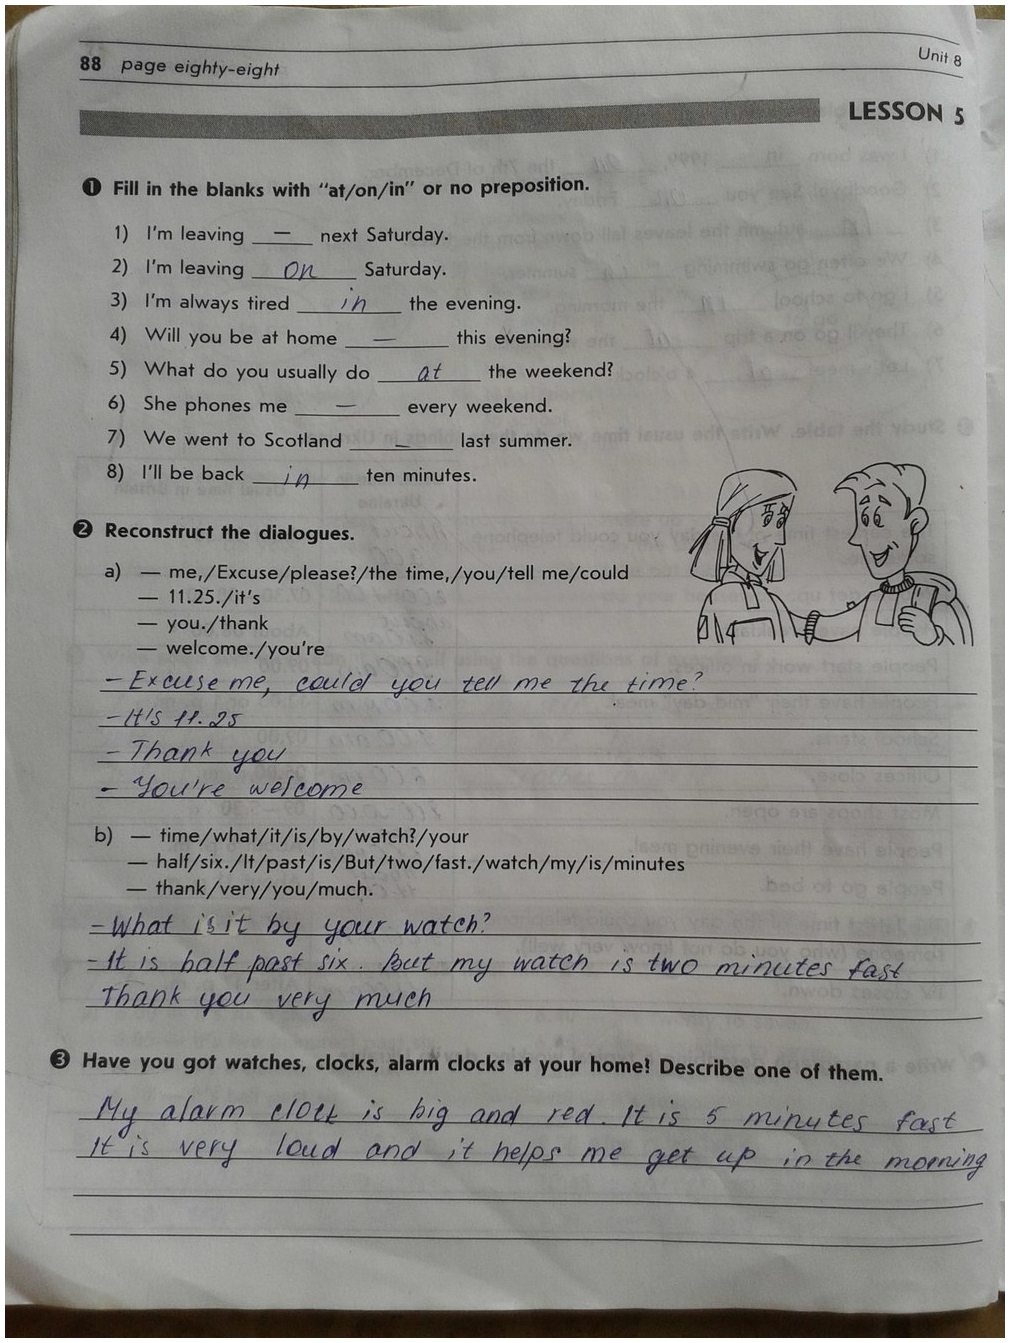 88 page eighty-eight
Unit 8
LESSON 5
❶ Fill in the blanks with "at/on/in" or no preposition.
1) I'm leaving — next Saturday.
2) I'm leaving on Saturday.
3) I'm always tired in the evening.
4) Will you be at home — this evening?
5) What do you usually do at the weekend?
6) She phones me — every weekend.
7) We went to Scotland — last summer.
8) I'll be back in ten minutes.
❷ Reconstruct the dialogues.
a) — me,/Excuse/please?/the time,/you/tell me/could
— 11.25./it's
— you./thank
— welcome./you're
- Excuse me, could you tell me the time?
- It's 11.25
- Thank you
- You're welcome
b) — time/what/it/is/by/watch?/your
— half/six./It/past/is/But/two/fast./watch/my/is/minutes
— thank/very/you/much.
- What is it by your watch?
- It is half past six. But my watch is two minutes fast
Thank you very much
❸ Have you got watches, clocks, alarm clocks at your home? Describe one of them.
My alarm clock is big and red. It is 5 minutes fast
It is very loud and it helps me get up in the morning